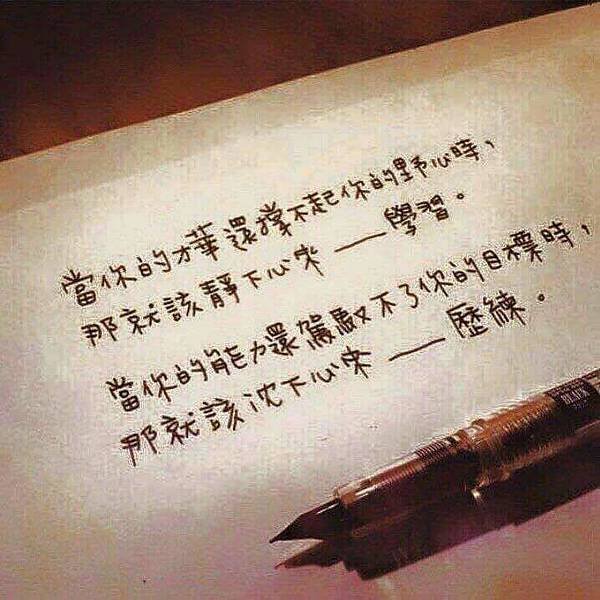 當你的才華還撐不起你的野心時，
那就該靜下心來——學習。
當你的能力還駕馭不了你的目標時，
那就該沈下心來——歷練。
BLACK